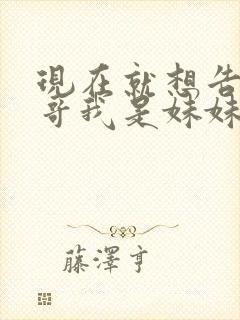 現在就想告
哥我是妹妹
藤澤亨